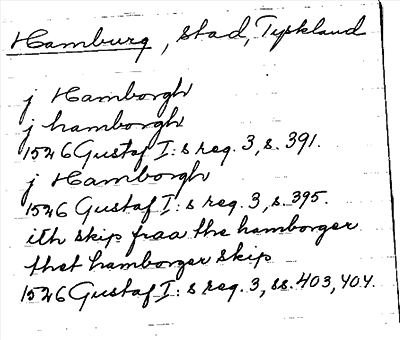 Hamburg, stad, Tyskland
j Hamborgh
j hamborgh
1526 Gustaf I:s reg. 3, s. 391.
j Hamborgh
1526 Gustaf I:s reg. 3, s. 395.
ith skip fraa the hamborger
thet hamborger skip
1526 Gustaf I:s reg. 3, ss. 403, 404.